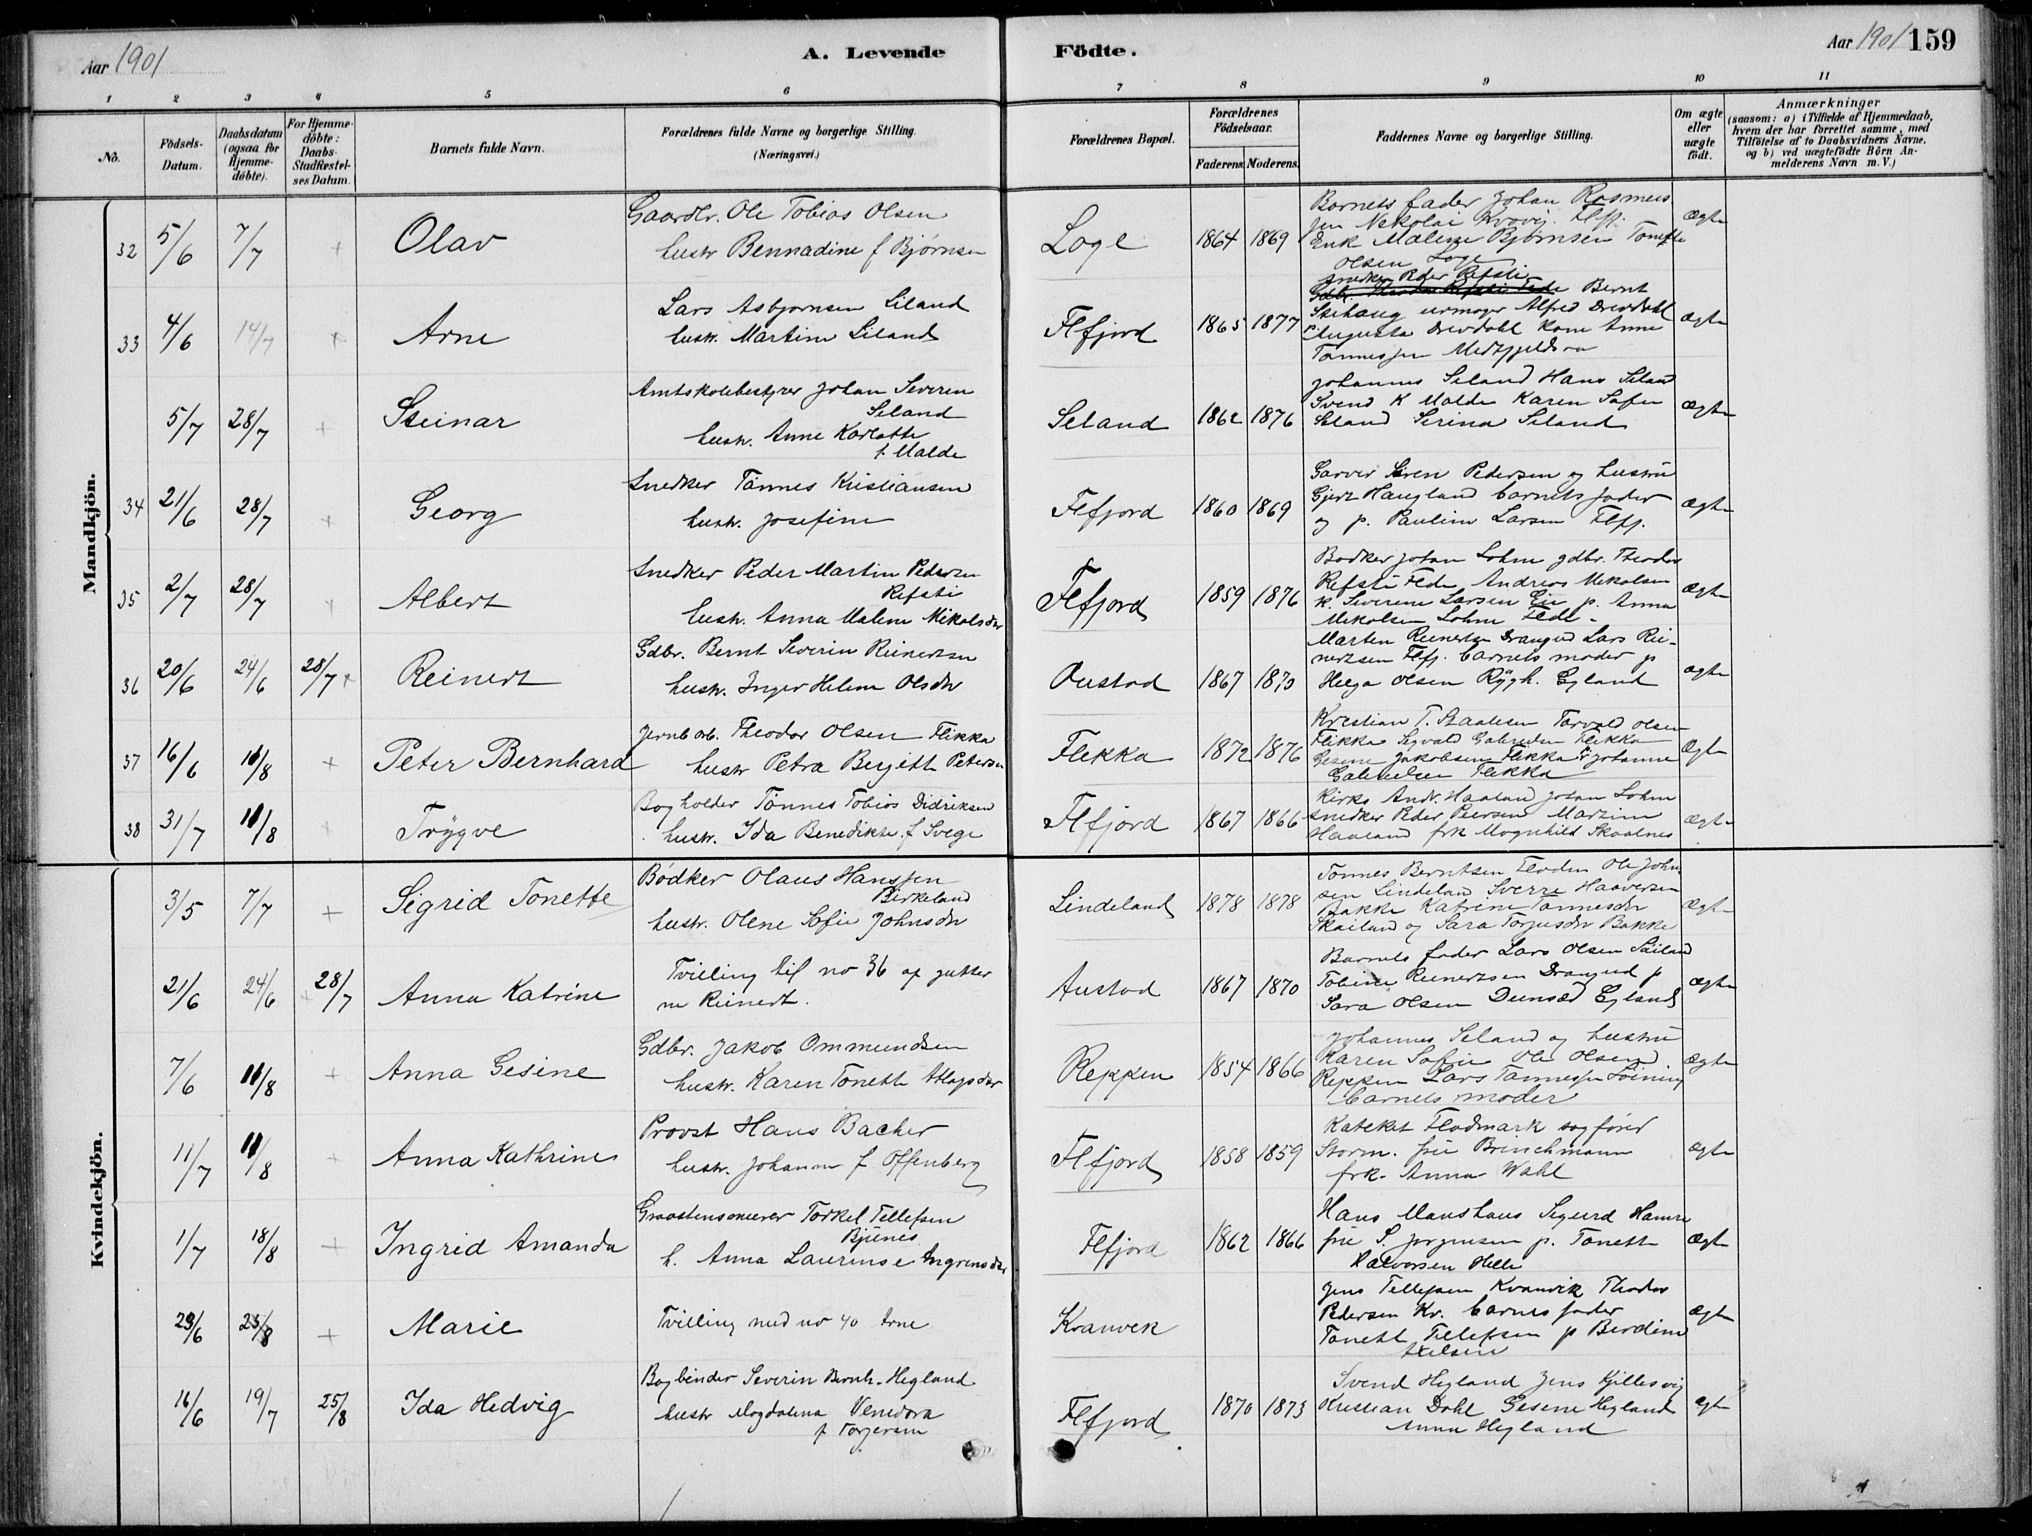 Aar 1901
A. Levende
Födte.
Aar 1901
159
1 2 3 4 5 6 7 8 9 10 11
No.
Födsels-Datum.
Daabsdatum (ogsaa for Hjemme-döbte).
For Hjemme-döbte: Daabs-Stadfæstel-ses Datum.
Barnets fulde Navn.
Forældrenes fulde Navne og borgerlige Stilling.
(Næringsvei.)
Forældrenes Bopæl.
Forældrenes Födselsaar.
Faderens. Moderens.
Faddernes Navne og borgerlige Stilling.
Om ægte eller uægte födt.
Anmærkninger
(saasom: a) i Tilfælde af Hjemmedaab, hvem der har forrettet samme, med Tilföielse af to Daabsvidners Navne, og b) ved uægtefödte Börn An-melderens Navn m. V.)
Mandkjön.
32 5/6 7/7 + Olav
Gaardbr. Ole Tobias Olsen
hustr Bennadine f Bjørnsen
Loge 1864 1869
Barnets fader Johan Rasmus
sen Nikolai Flfj.
Enk Malene Bjørnsen Tonette
Olsen Loge
Ægte
33 4/6 14/7 + Arne
Lars Asbjørnsen Liland
hustr. Martine Liland
Flfjord 1865 1877
snedker Peder Refsti
Bernt
Stehaug urmager Alfred Drevdahl
Augusta Drevdahl Kone Anne
Tønnessen
Ægte
5/7 28/7 + Steinar
Amtskolebestyrer Johan Severen
Seland
hustr. Anne Karlotte
f. Malde
Seland 1862 1876
Johannes Seland Hans Seland
Svend K Malde Karen Sofie
Seland Serina Seland
Ægte
34 21/6 28/7 + Georg
Snedker Tønnes Kristiansen
hustr. Josefine
Flfjord 1860 1869
Garver Søren Pedersen og hustru
Gjert Haugland barnets fader
og p. Pauline Larsen Flfj.
Ægte
35 2/7 28/7 + Albert
Snedker Peder Martin Pedersen
Refsti
hustr. Anna Malene Mikalsdtr
Flfjord 1859 1876
Bødker Johan Lohne gdbr. Theodor
Refsti Flde Andreas Mikalsen
k. Severene Larsen Eie p. Anna
Mikalsen Lohne Flde.
Ægte
36 20/6 24/6 28/7 + Reinert
Gdbr. Bernt Severin Reinertsen
hustr. Inger Helene Olsdtr
Oustad 1867 1870
Marten Reinertsen Drangsd Lars Rei-
nertsen Flfj. barnets moder p
Helga Olsen Rygh. Egland
ægte
37 16/6 11/8 + Peter Bernhard
Jernb arb. Theodor Olsen Flikka
hustr Petra Bergitte Petersen
Flekka 1872 1876
Kristian T. Torvald Olsen
Flikka Sigvald Gabrielsen Flikka
Gesine Jakobsen Flikka Johanne
Gabrielsen Flikka
Ægte
38 31/7 11/8 + Trygve
Bogholder Tønnes Tobias Didriksen
hustr. Ida Benedikte f Svege
Flfjord 1867 1866
Kirks Andr. Haaland Johan Lohne
snedker Peder Martine
Haaland frk Magnhild Skaalnes
Ægte
Kvindekjön.
3/5 7/7 + Sigrid Tonette
Bødker Olaus Hanssen
Birkeland
hustr. Olene Sofie Johnsdtr
Lindeland 1878 1878
Tønnes Berntsen Floden Ole John
sen Lindeland Sverre Haaversen
Bakke Katrine Tønnesdtr
Skailand og Sara Torjusdtr Bakke
Ægte
21/6 24/6 28/7 Anna Katrine
Tvilling til no 36 af gutter
ne Reinert.
Austad 1867 1870
Barnets fader Lars Olsen
Tobine Reinertsen Drangsd p
Sara Olsen Egland
Ægte
7/6 11/8 + Anna Gesine
Gdbr. Jakob Ommundsen
hustr. Karen Tonette Aslagsdtr
Reppen 1854 1866
Johannes Seland og hustru
Karen Sofie Ole Olsen
Reppen Lars Tønnessen
barnets moder
Ægte
11/7 11/8 + Anna Kathrine
Provst Hans Bacher
hustr. Johanne f Offenberg
Flfjord 1858 1859
Kateket Flodmark sagfører
Storm. frue Brinchmann
frk. Anna Wahl
ægte
1/7 18/8 + Ingrid Amanda
Graastensmurer Torkel Tellefsen
Bjunes
h. Anna Laurense Ingvensdtr
Flfjord 1862 1866
Hans Maushaus Sigurd Hamre
frue S. Jørgensen p. Tonette
Halvorsen Helle
Ægte
23/6 25/8 + Marie
Tvilling med no 40 Arne
Kvanvek
Jens Tellefsen Kvanvik Theodor
Pedersen Kv. barnets fader
Tonette Tellefsen p Berdine
Axelsen
Ægte
16/6 19/7 25/8 Ida Hedvig
Bogbinder Severin Bernh. Hegland
hustr Magdalena Venedora
f Torjersen
Flfjord 1870 1873
Svend Hegland Jens
Kristian Dahl Gesine Hegland
Anna Hegland
Ægte